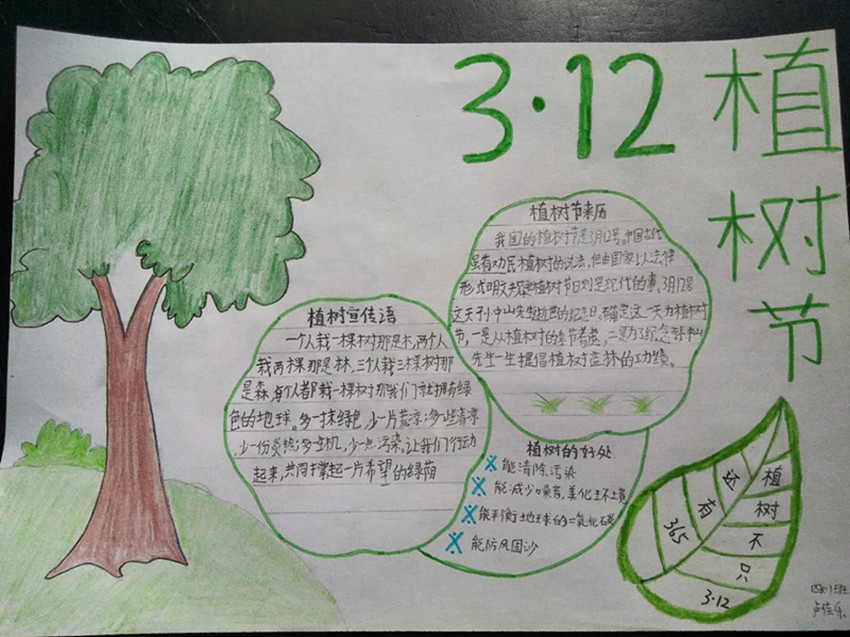 3·12 植
树
节
植树节来历
我国的植树节是3月12号。中国古代
虽有劝民植树的说法,但由国家以法律
形式明文规定植树节日则是现代的事。3月12号
这天孙中山先生逝世的纪念日,确定这一天为植树
节,一是从植树的季节考虑,二是为了纪念孙中山
先生一生提倡植树造林的功绩。
植树宣传语
一个人栽一棵树那是木,两个人
栽两棵那是林,三个人栽三棵树那
是森,每个人都栽一棵树那我们就拥有绿
色的地球。多一抹绿色,少一片荒凉;多一些清凉
少一份炎热;多生机,少一点污染。让我们行动
起来,共同撑起一片希望的绿荫
植树的好处
能清除污染
能减少噪音,美化
能平衡地球的二氧化碳
能防风固沙
植
树
不
只
3·12
还
有
365
卢佳乐